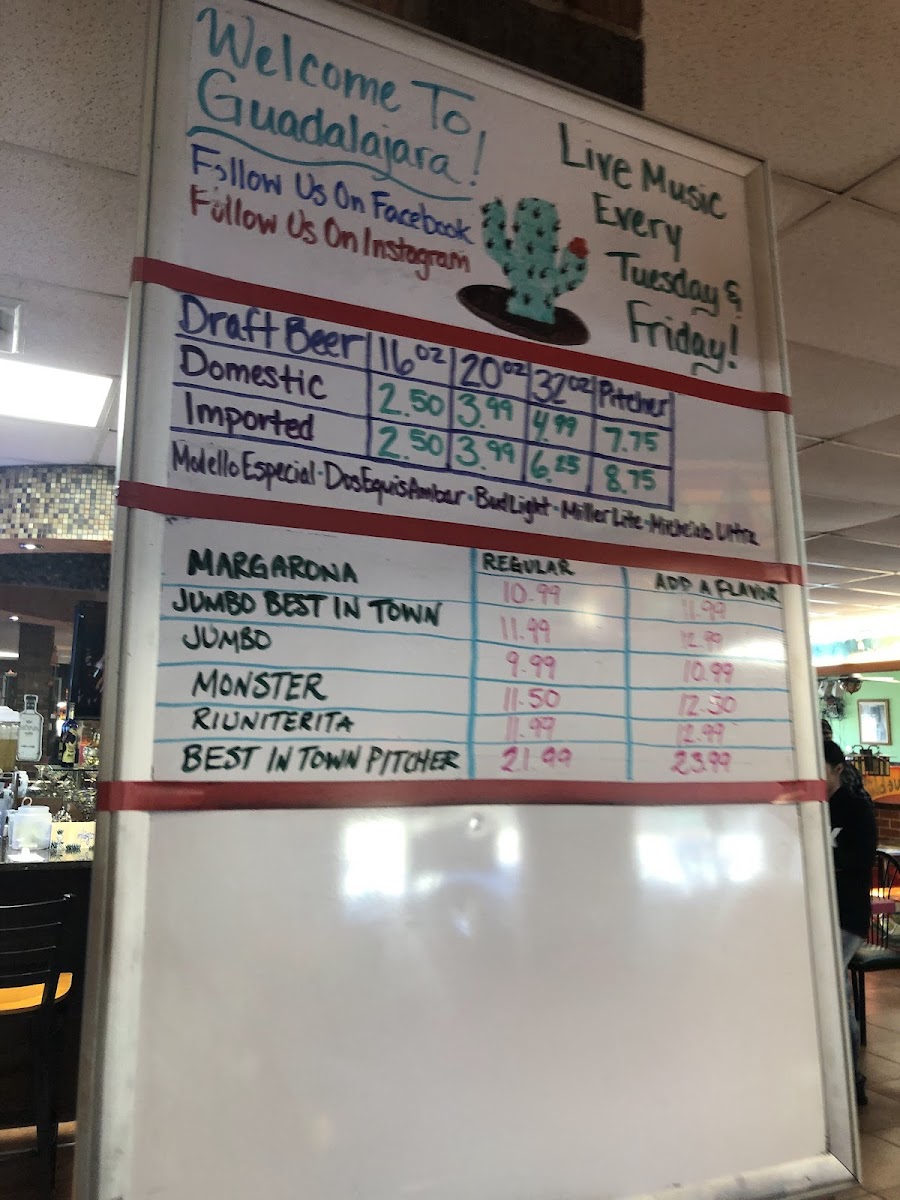 Welcome To
Guadalajara!
Follow Us On Facebook
Follow Us On Instagram
Live Music
Every
Tuesday &
Friday!
Draft Beer 16oz 20oz 32oz Pitcher
Domestic 2.50 3.99 4.99 7.75
Imported 2.50 3.99 6.25 8.75
Modello Especial - Dos Equis Amber - Bud Light - Miller Lite - Michelob Ultra
REGULAR ADD A FLAVOR
MARGARONA 10.99 11.99
JUMBO BEST IN TOWN 11.99 12.99
JUMBO 9.99 10.99
MONSTER 11.50 12.50
RIUNITERITA 11.99 12.99
BEST IN TOWN PITCHER 21.99 23.99